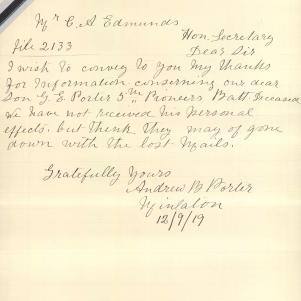 Mr C. A Edmunds
Hon. Secretary
File 2133
Dear Sir
I wish to convey to you my thanks
for Information concerning our dear
Son G. E. Porter 5th Pioneers Batt. Deceased
we have not received his personal
effects. but think they may of gone
down with the lost Mails.
Gratefully Yours
Andrew B Porter
Minlaton
12/9/19